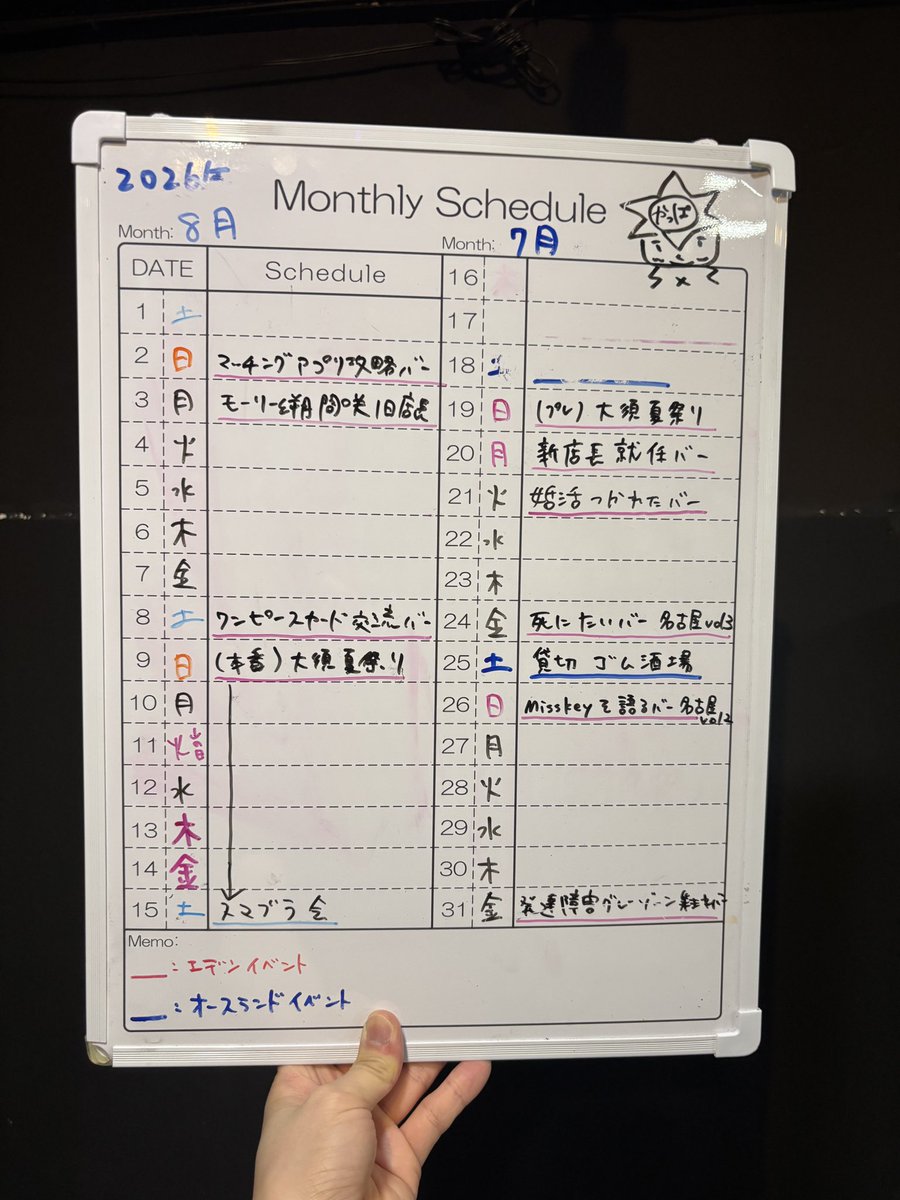 2026年
Monthly Schedule
やっぱ
Month: 8月
Month: 7月
DATE Schedule
1 土
2 日 マーチングアプリ攻略バー
3 月 モーリー 間咲 旧店長
4 火
5 水
6 木
7 金
8 土 ワンピースカード交流バー
9 日 (本番)大須夏祭り
10 月
11 火 山の日
12 水
13 木
14 金
15 土 スマブラ会
16 木
17
18 土
19 日 (プレ)大須夏祭り
20 月 新店長就任バー
21 火 婚活つかれたバー
22 水
23 木
24 金 死にたいバー 名古屋vol3
25 土 貸切 ゴム酒場
26 日 Misskeyを語るバー 名古屋vol2
27 月
28 火
29 水
30 木
31 金 発達障害グレーゾーン
Memo:
: エデンイベント
: オースランドイベント